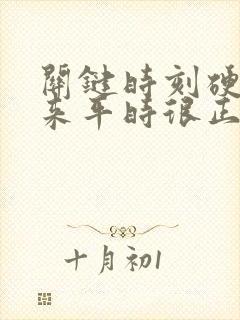 關鍵時刻硬
来平時很正
十月初1